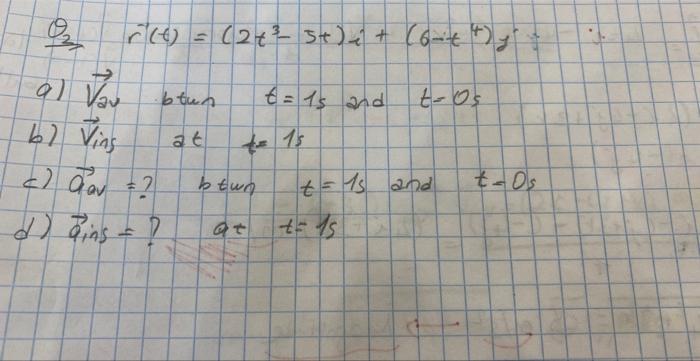 Q2 r⃗(t) = (2t³ - 5t)i + (6 - t⁴)j
a) V⃗av btwn t = 1s and t = 0s
b) V⃗ins at t = 1s
c) a⃗av = ? btwn t = 1s and t = 0s
d) a⃗ins = ? at t = 1s